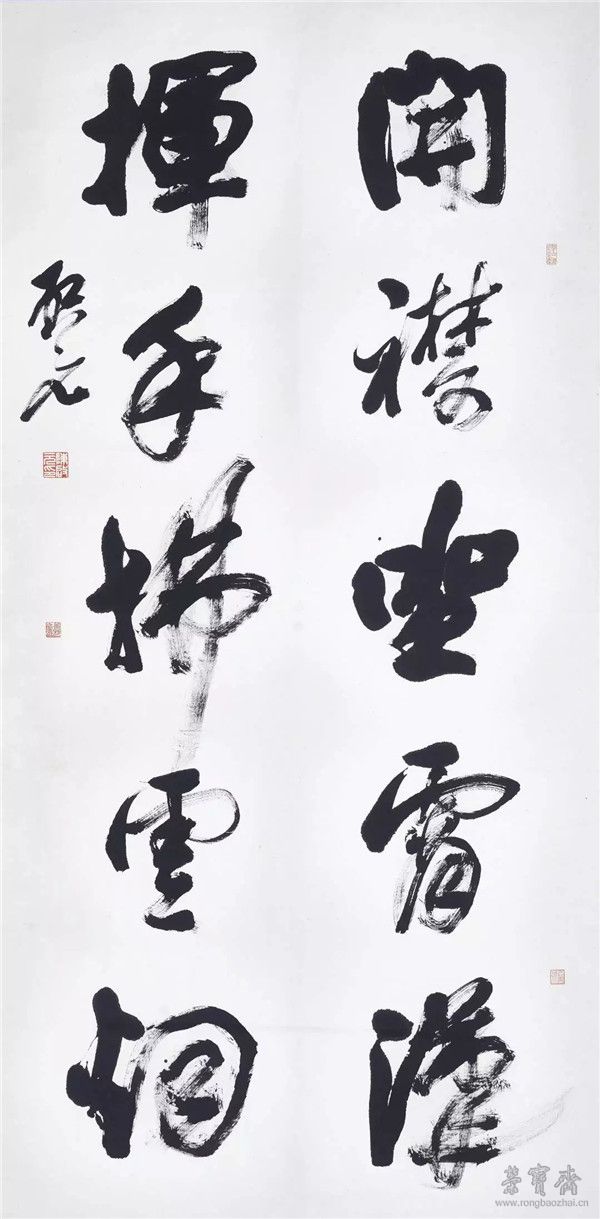 開襟坐霄漢
揮手拂雲烟
啟元
榮寶齋
www.rongbaozhai.cn